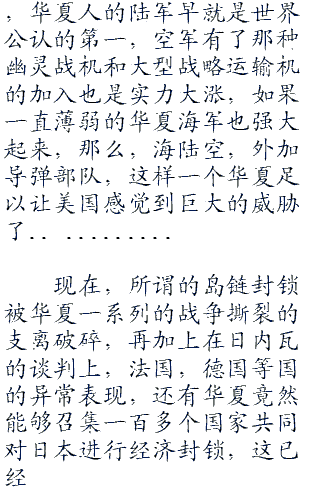 ，华夏人的陆军早就是世界
公认的第一，空军有了那种
幽灵战机和大型战略运输机
的加入也是实力大涨，如果
一直薄弱的华夏海军也强大
起来，那么，海陆空，外加
导弹部队，这样一个华夏足
以让美国感觉到巨大的威胁
了．．．．．．．．．．．
现在，所谓的岛链封锁
被华夏一系列的战争撕裂的
支离破碎，再加上在日内瓦
的谈判上，法国，德国等国
的异常表现，还有华夏竟然
能够召集一百多个国家共同
对日本进行经济封锁，这已
经